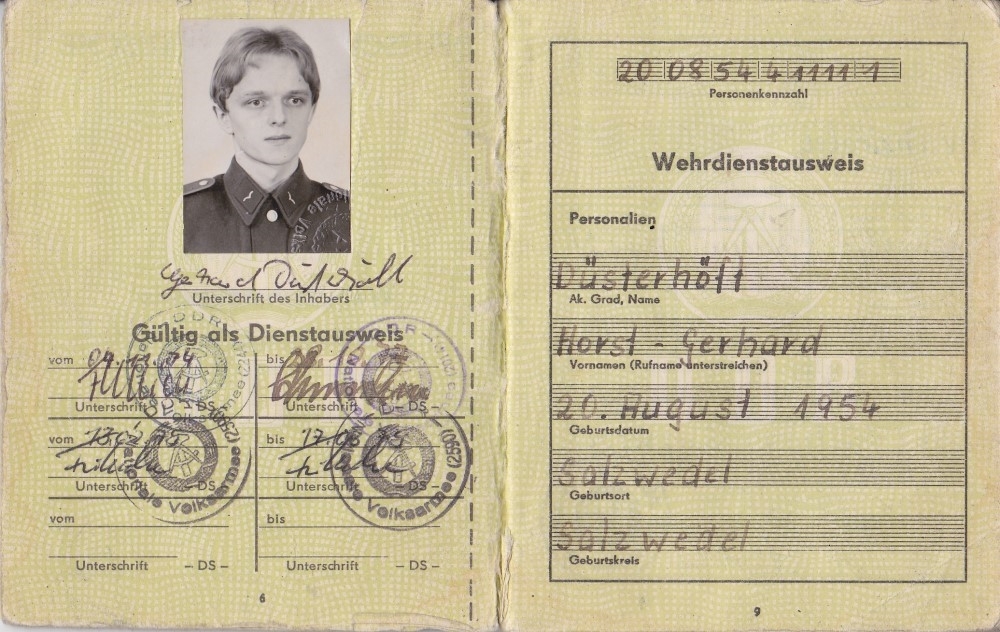 Unterschrift des Inhabers
Gültig als Dienstausweis
vom
bis
Unterschrift – DS –
Unterschrift – DS –
vom
bis
Unterschrift – DS –
Unterschrift – DS –
vom
bis
Unterschrift – DS –
Unterschrift – DS –
Nationale Volksarmee (2590)
6
20 08 54 4 1111 1
Personenkennzahl
Wehrdienstausweis
Personalien
Düsterhöft
Ak. Grad, Name
Horst - Gerhard
Vornamen (Rufname unterstreichen)
20. August 1954
Geburtsdatum
Salzwedel
Geburtsort
Salzwedel
Geburtskreis
9